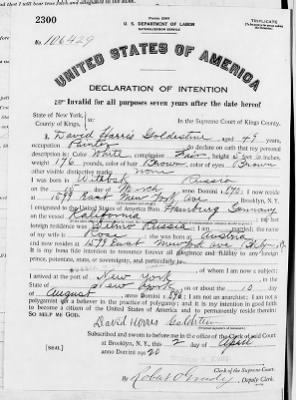 2300
U. S. DEPARTMENT OF LABOR
NATURALIZATION SERVICE
TRIPLICATE
No. 106429
UNITED STATES OF AMERICA
DECLARATION OF INTENTION
Invalid for all purposes seven years after the date hereof
State of New York,
County of Kings,
In the Supreme Court of Kings County.
I, David Harris Goldstein, aged 49 years,
occupation Painter, do declare on oath that my personal
description is: Color White, complexion Fair, height 5 feet 6 inches,
weight 176 pounds, color of hair Brown, color of eyes Brown
other visible distinctive marks none
I was born in Vitebsk Russia
on the day of March, anno Domini 1870; I now reside
at 1699 East New York Ave, Brooklyn, N.Y.
I emigrated to the United States of America from Hamburg Germany
on the vessel California; my last
foreign residence was Russia; I am married; the name
of my wife is Rose; she was born in Austria
and now resides at 1699 East New York Ave Bklyn N.Y.
It is my bona fide intention to renounce forever all allegiance and fidelity to any foreign
prince, potentate, state, or sovereignty, and particularly to
of whom I am now a subject;
I arrived at the port of New York, in the
State of New York, on or about the 10 day
of August, anno Domini 1896; I am not an anarchist; I am not a
polygamist nor a believer in the practice of polygamy; and it is my intention in good faith
to become a citizen of the United States of America and to permanently reside therein:
SO HELP ME GOD.
David Harris Goldstein
Subscribed and sworn to before me in the office of the Clerk of said Court
[SEAL.]
at Brooklyn, N.Y., this 2 day of April
anno Domini 1920
Clerk of the Supreme Court.
By Deputy Clerk.